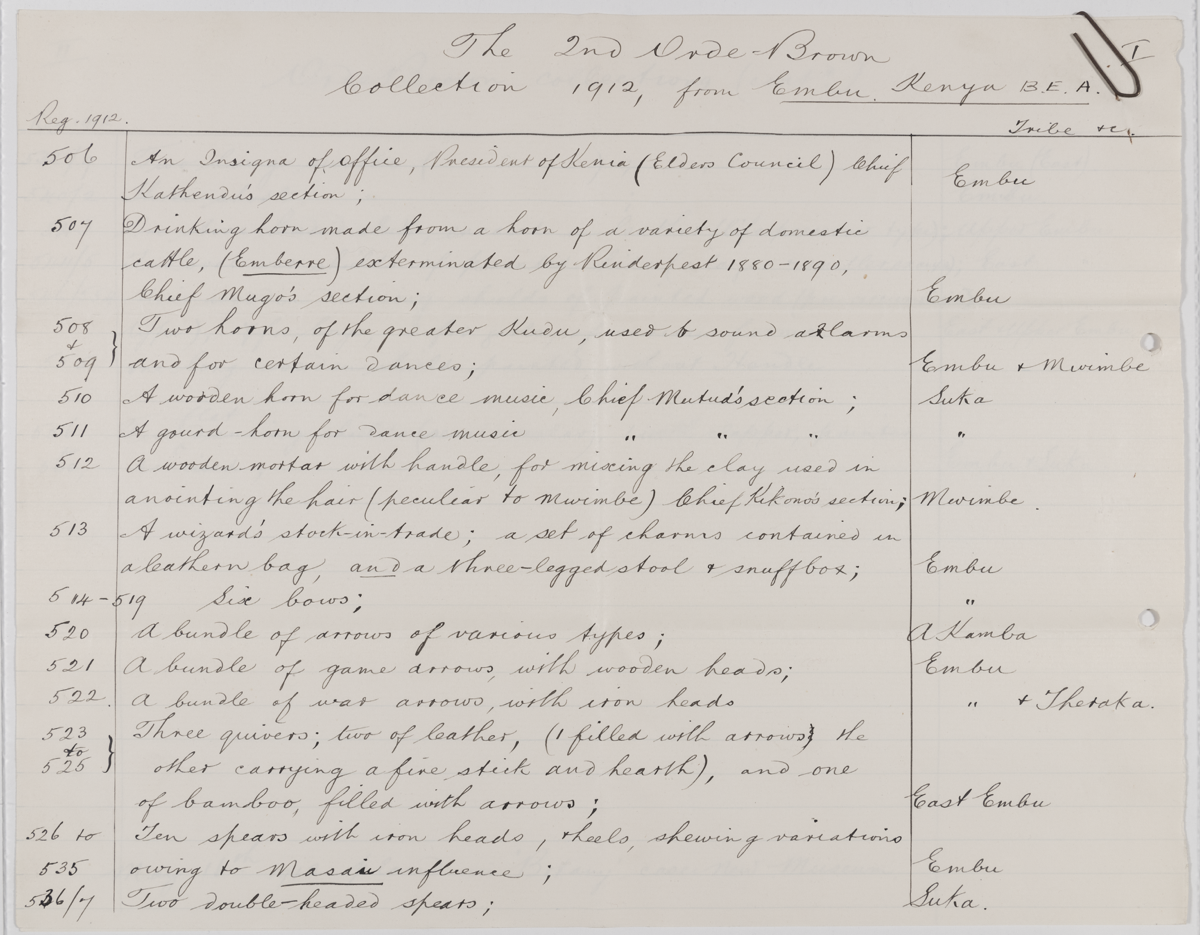 The 2nd Orde-Brown I
Collection 1912, from Embu. Kenya B.E.A.
Reg. 1912. Tribe &c.
506 An Insigna of office, President of Kenia (Elders Council) Chief
Kathendu's section; Embu
507 Drinking horn made from a horn of a variety of domestic
cattle, (Emberre) exterminated by Rinderpest 1880-1890,
Chief Mugo's section; Embu
508 Two horns, of the greater Kudu, used to sound alarms
&
509 } and for certain dances; Embu & Mwimbe
510 A wooden horn for dance music, Chief Mutud's section; Suka
511 A gourd-horn for dance music " " " "
512 A wooden mortar with handle, for mixing the clay used in
anointing the hair (peculiar to Mwimbe) Chief Kikono's section; Mwimbe.
513 A wizard's stock-in-trade; a set of charms contained in
a leathern bag, and a three-legged stool & snuffbox; Embu
514-519 Six bows; "
520 A bundle of arrows of various types; A Kamba
521 A bundle of game arrows, with wooden heads; Embu
522. A bundle of war arrows, with iron heads " & Theraka.
523 Three quivers; two of leather, (1 filled with arrows} the
to
525 } other carrying a fire stick and hearth), and one
of bamboo, filled with arrows; East Embu
526 to Ten spears with iron heads, & heels, shewing variations
535 owing to Masai influence; Embu
536/7 Two double-headed spears; Suka.